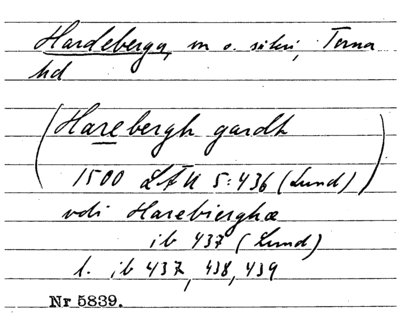 Hardeberga, m o. sikri, Torna
hd
(Harebergh gardh
1500 LÄU 5:436 (Lund))
vdi Harebierghæ
ib 437 (Lund)
l. ib 437, 438, 439
Nr 5839.